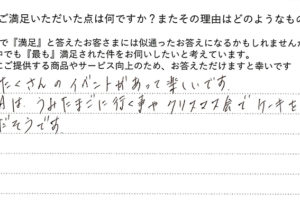 ご満足いただいた点は何ですか？またその理由はどのようなもの
で『満足』と答えたお客さまには似通ったお答えになるかもしれませんか
中でも『最も』満足された件をお伺いしたいと考えています。
にご提供する商品やサービス向上のため、お答えただけますと幸いです
たくさんのイベントがあって楽しいです
Aは、うみたまごに行く事やクリスマス会でケーキを
だそうです